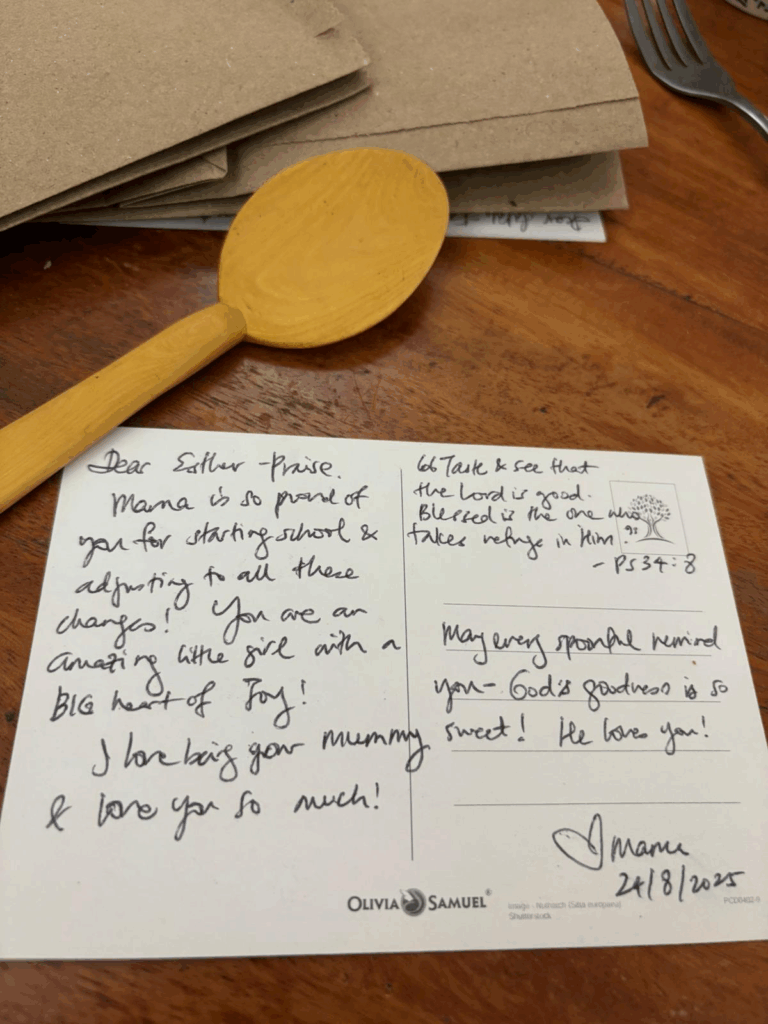 Dear Esther-Praise.
Mama is so proud of
you for starting school &
adjusting to all these
changes! You are an
amazing little girl with a
BIG heart of Joy!
I love being your mummy
& love you so much!
“Taste & see that
the Lord is good.
Blessed is the one who
takes refuge in Him.”
- PS 34:8
May every spoonful remind
you- God's goodness is so
sweet! He loves you!
♡ Mama
24/8/2025
OLIVIA SAMUEL®
Image - Nuthatch (Sitta europaea)
Shutterstock